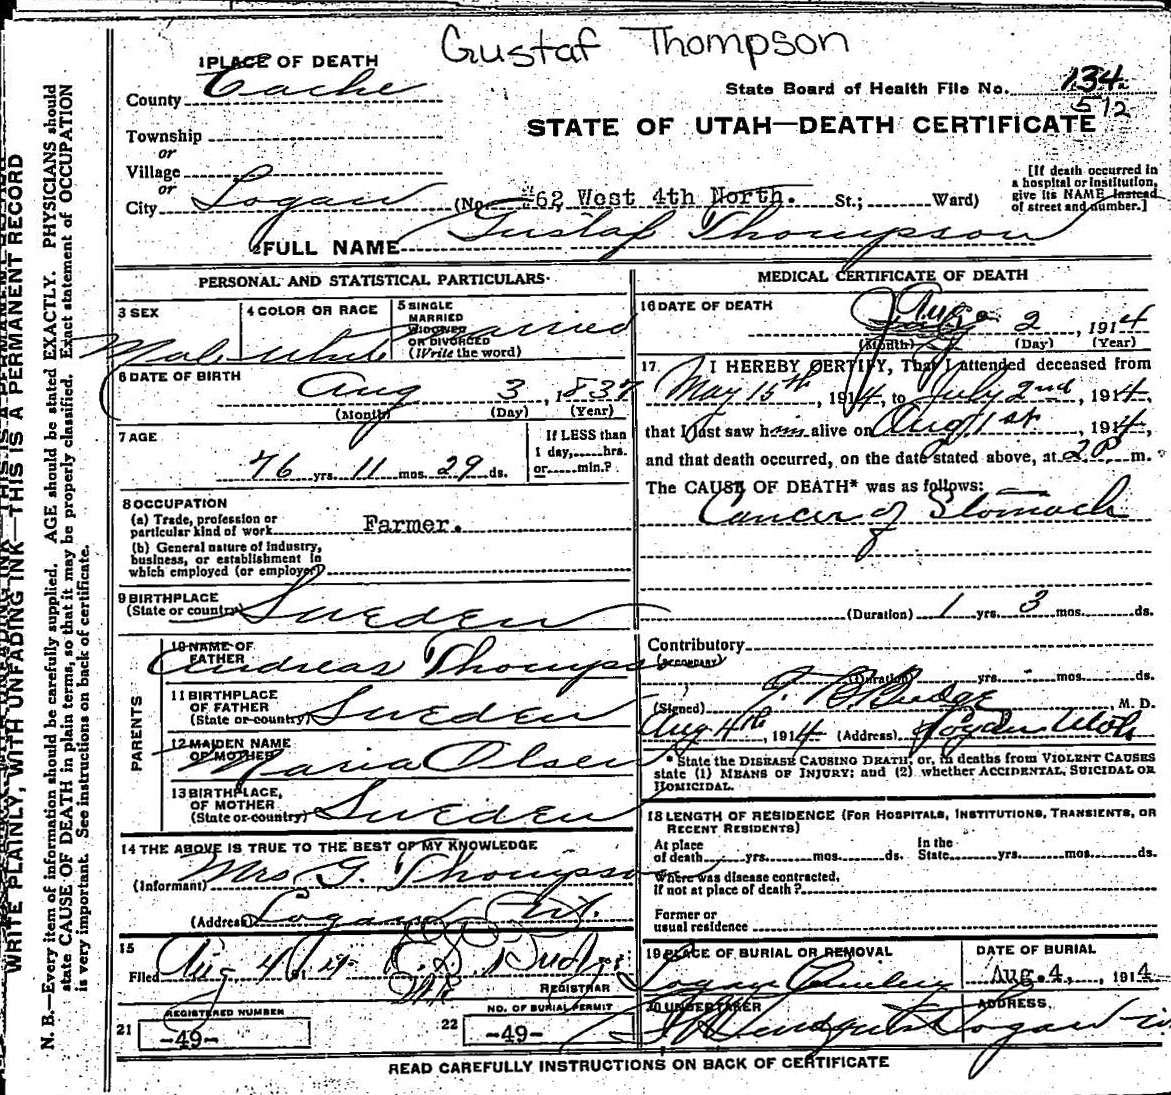 Gustaf Thompson
1 PLACE OF DEATH
County Cache
State Board of Health File No. 134
512
STATE OF UTAH—DEATH CERTIFICATE
Township
or
Village
or
City Logan (No. #62 West 4th North. St.; Ward)
[If death occurred in
a hospital or institution,
give its NAME instead
of street and number.]
2 FULL NAME Gustaf Thompson
PERSONAL AND STATISTICAL PARTICULARS
3 SEX
Male
4 COLOR OR RACE
White
5 SINGLE
MARRIED
WIDOWED
OR DIVORCED
(Write the word)
Married
6 DATE OF BIRTH
Aug 3, 1837
(Month) (Day) (Year)
7 AGE
76 yrs. 11 mos. 29 ds.
If LESS than
1 day,.....hrs.
or.....min.?
8 OCCUPATION
(a) Trade, profession or
particular kind of work Farmer.
(b) General nature of industry,
business, or establishment in
which employed (or employer)
9 BIRTHPLACE
(State or country) Sweden
PARENTS
10 NAME OF
FATHER
Andreas Thompson
11 BIRTHPLACE
OF FATHER
(State or country) Sweden
12 MAIDEN NAME
OF MOTHER
Maria Olsen
13 BIRTHPLACE,
OF MOTHER
(State or country) Sweden
14 THE ABOVE IS TRUE TO THE BEST OF MY KNOWLEDGE
(Informant) Mrs G. Thompson
(Address) Logan Ut.
15
Filed Aug 4, 1914
REGISTRAR
REGISTERED NUMBER
21 -49-
NO. OF BURIAL PERMIT
22 -49-
MEDICAL CERTIFICATE OF DEATH
16 DATE OF DEATH
Aug 2, 1914
(Month) (Day) (Year)
17 I HEREBY CERTIFY, That I attended deceased from
May 15th, 1914, to July 2nd, 1914,
that I last saw him alive on Aug 1st, 1914,
and that death occurred, on the date stated above, at 2 P m.
The CAUSE OF DEATH* was as follows:
Cancer of Stomach
(Duration) 1 yrs. 3 mos. ds.
Contributory
(SECONDARY)
(Duration) yrs. mos. ds.
(Signed) Budge, M. D.
Aug 4th, 1914 (Address) Logan Utah
* State the DISEASE CAUSING DEATH, or, in deaths from VIOLENT CAUSES
state (1) MEANS OF INJURY; and (2) whether ACCIDENTAL, SUICIDAL OR
HOMICIDAL.
18 LENGTH OF RESIDENCE (FOR HOSPITALS, INSTITUTIONS, TRANSIENTS, OR
RECENT RESIDENTS)
At place
of death yrs. mos. ds.
In the
State yrs. mos. ds.
Where was disease contracted,
if not at place of death?
Former or
usual residence
19 PLACE OF BURIAL OR REMOVAL
Logan
DATE OF BURIAL
Aug. 4, 1914
20 UNDERTAKER
ADDRESS.
Logan
READ CAREFULLY INSTRUCTIONS ON BACK OF CERTIFICATE
WRITE PLAINLY, WITH UNFADING INK—THIS IS A PERMANENT RECORD
N. B.—Every item of information should be carefully supplied. AGE should be stated EXACTLY. PHYSICIANS should
state CAUSE OF DEATH in plain terms, so that it may be properly classified. Exact statement of OCCUPATION
is very important. See instructions on back of certificate.